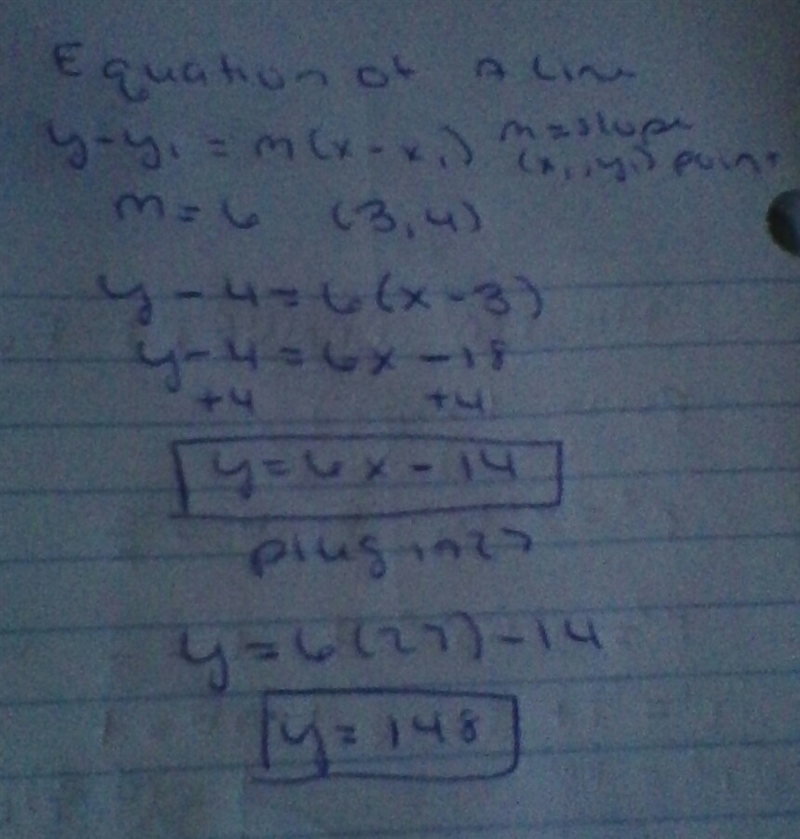 Equation of A Line
y-y₁ = m(x-x₁) m=slope
(x₁,y₁) point
m=6 (3,4)
y-4=6(x-3)
y-4=6x-18
+4 +4
y=6x-14
plug in 27
y=6(27)-14
y=148